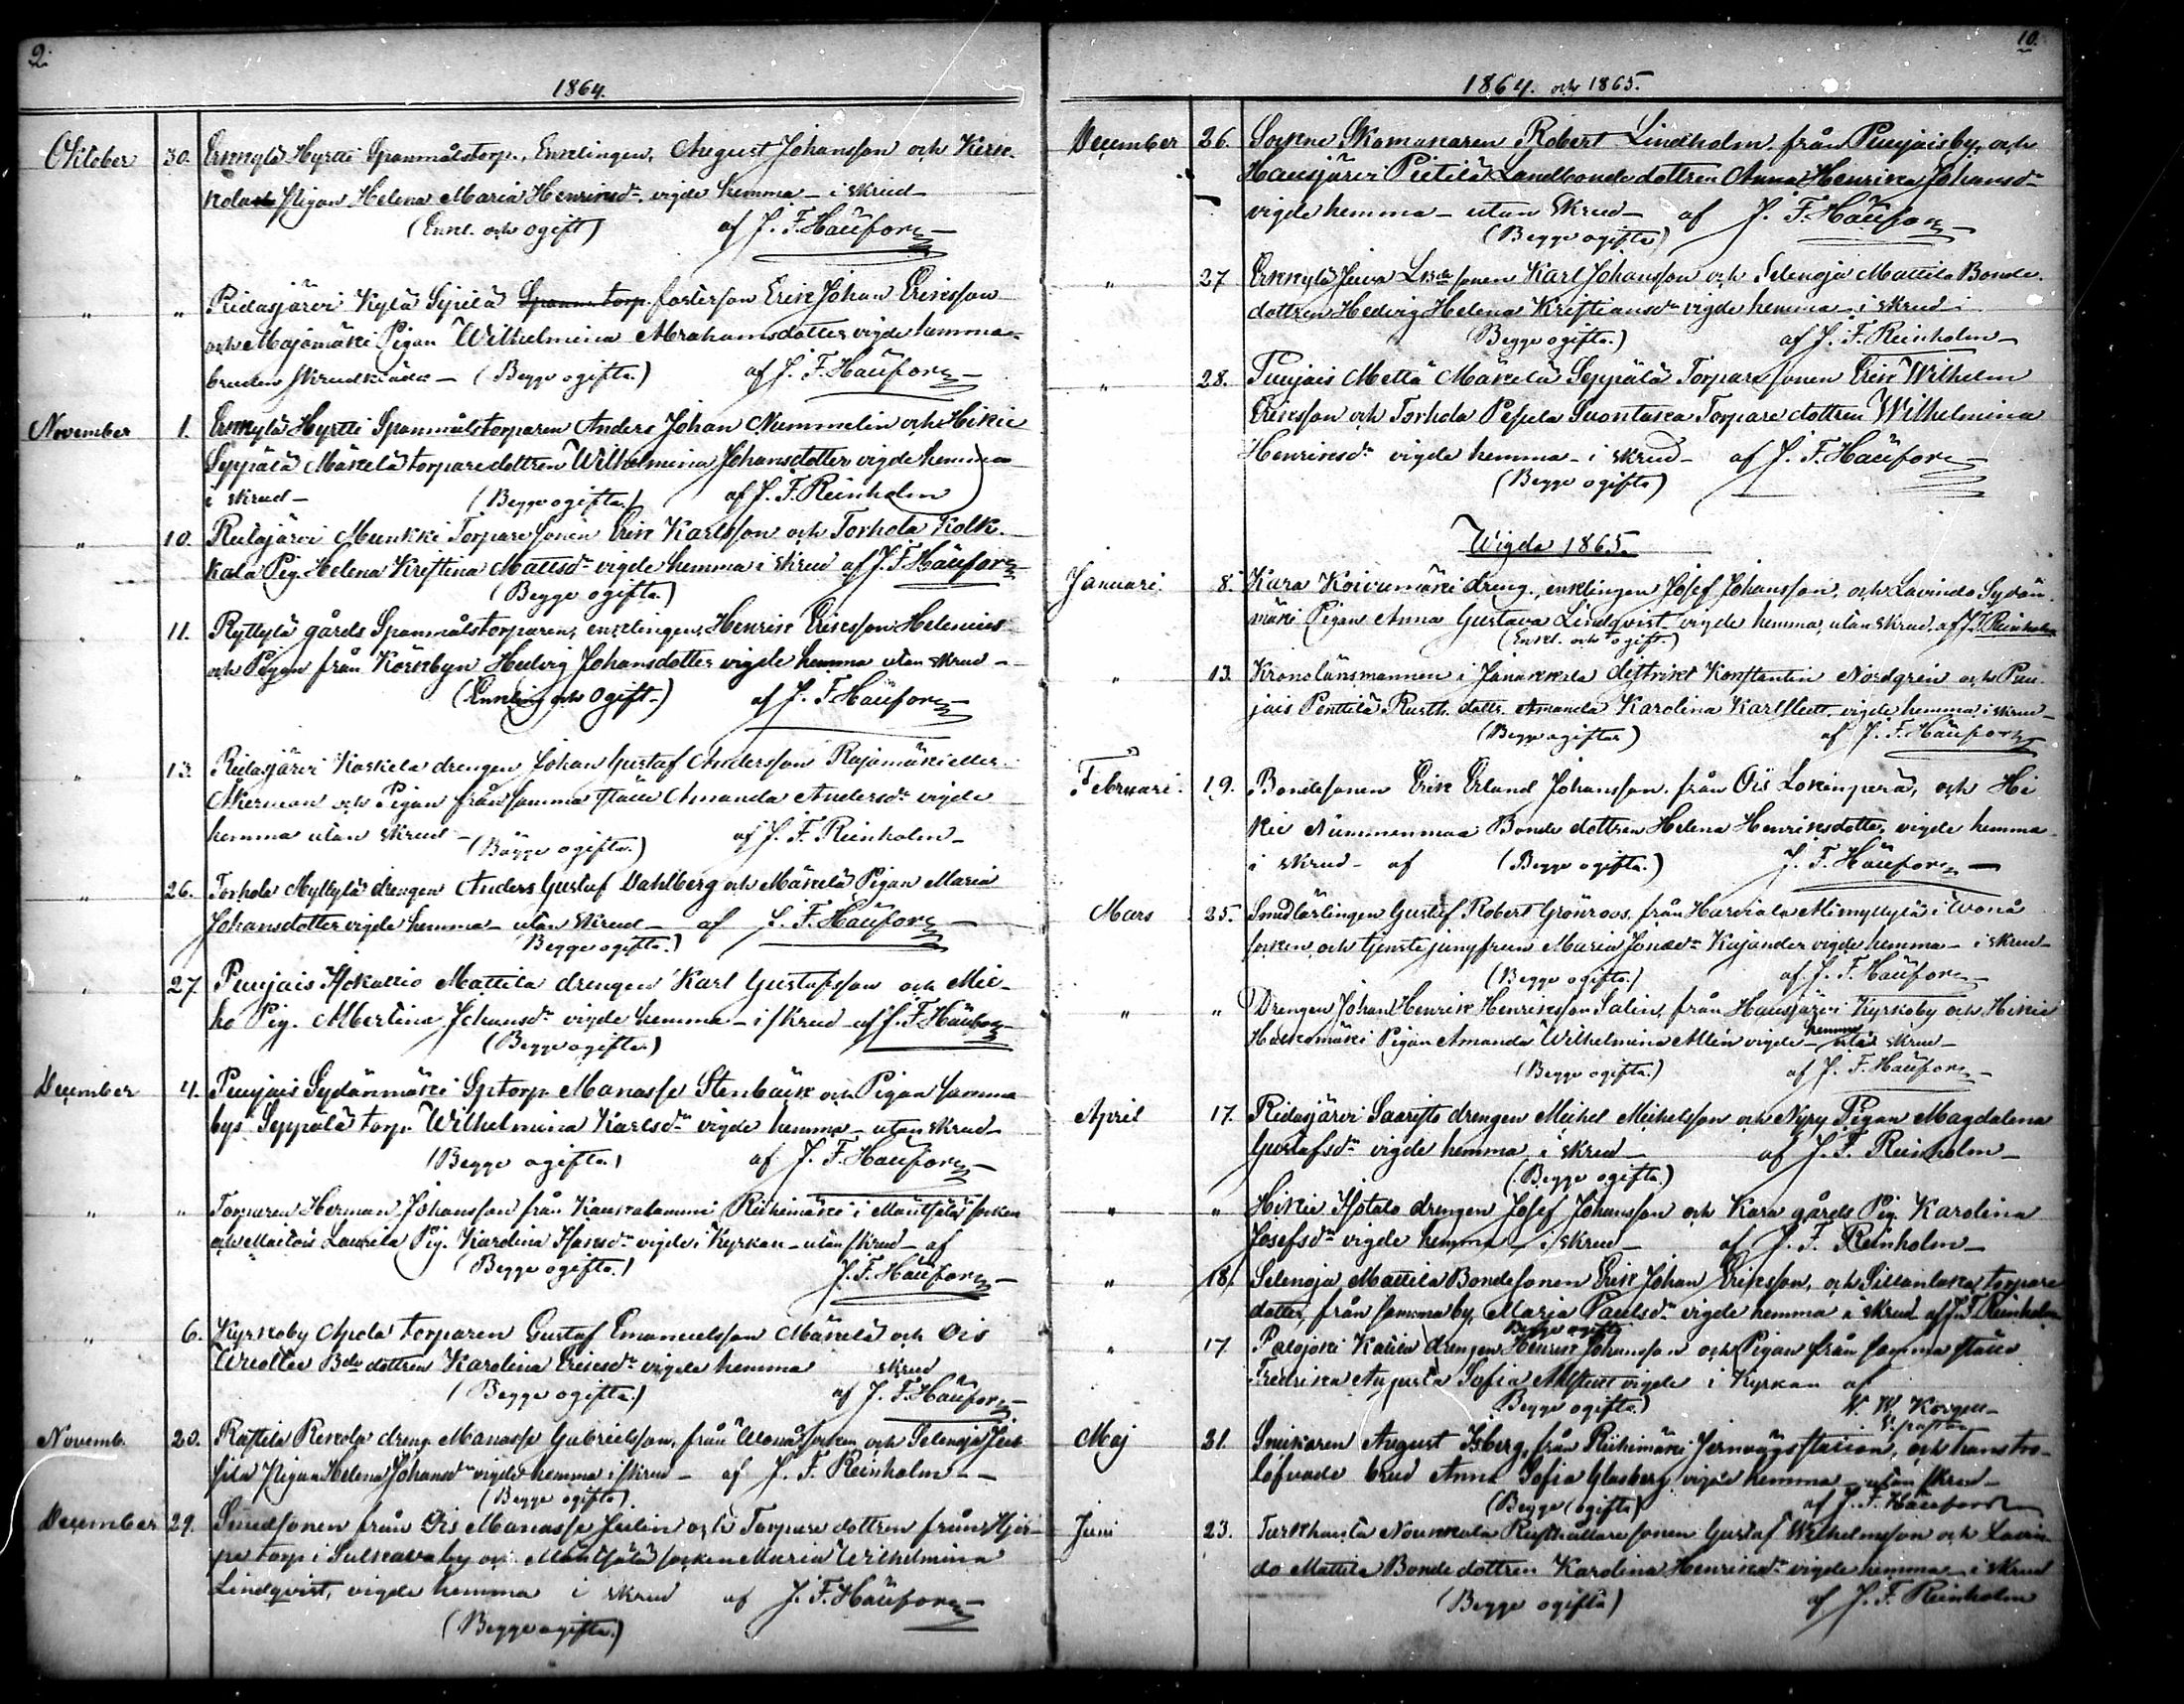 2.
1864.
Oktober 30. Erkkylä Hyrtti Spanmålstorp., Enklingen, August Johansson och Kirk-
kola Pigan Helena Maria Henriksdr vigde hemma – i skrud –
(Enkl. och ogift) af J. F. Häüfors
" " Ridasjärvi Kylä Sipilä Spanm. torp. fosterson Erik Johan Eriksson
och Majamäki Pigan Wilhelmina Abrahamsdotter vigde hemma –
bruden skrudklädd – (Begge ogifta.) af J. F. Häüfors
November 1. Erkkylä Hyrtti Spanmålstorparen Anders Johan Nummelin och Hikiä
Seppälä Mäkelä torparedottren Wilhelmina Johansdotter vigde hemma
i skrud – (Begge ogifta.) af J. F. Reinholm
" 10. Ridasjärvi Munkki Torparesonen Erik Karlsson och Torhola Kolk-
kala Pig. Helena Kristina Mattsdr vigde hemma i skrud af J. F. Häüfors
(Begge ogifta.)
" 11. Ryttylä gårds Spanmålstorparen, enklingen, Henrik Eriksson Helenius
och Pigan från Karkbyn Hedvig Johansdotter vigde hemma utan skrud –
(Enkling och Ogift.) af J. F. Häüfors
" 13. Ridasjärvi Koskela drengen Johan Gustaf Andersson Rajamäki eller
Åkerman och Pigan från samma ställe Amanda Andersdr vigde
hemma utan skrud – (Bägge ogifta.) af J. F. Reinholm –
" 26. Torhola Myllylä drengen Anders Gustaf Dahlberg och Mäkelä Pigan Maria
Johansdotter vigde hemma – utan skrud – af J. F. Häüfors
(Begge ogifta.)
" 27. Puujais Isokallio Mattila drengen Karl Gustafsson och Mie-
ho Pig. Albertina Johansdr vigde hemma – i skrud – af J. F. Häüfors
(Begge ogifta.)
December 4. Puujais Sydänmäki Sptorp. Manasse Stenbäck och Pigan samma
bys Seppälä torp. Wilhelmina Karlsdr vigde hemma – utan skrud –
(Begge ogifta.) af J. F. Häüfors
" " Torparen Herman Johansson från Kaukalammi Riihimäki i Mäntsälä socken
och Maitois Laurila Pig. Karolina Isaksdr vigde i Kyrkan – utan skrud – af
(Begge ogifta.) J. F. Häüfors
" 6. Kyrkoby Apola torparen Gustaf Emanuelsson Mäkelä och Ois
Uriolla Bde dottren Karolina Eriksdr vigde hemma skrud
(Begge ogifta.) af J. F. Häüfors
Novemb. 20. Rastila Rekola dreng Manasse Gabrielsson, från Wånå socken och Selenoja Jus-
sila Pigan Helena Johansdr vigde hemma i skrud – af J. F. Reinholm –
(Begge ogifta).
December 29. Smedsonen från Ois Manasse Julin och Torpare dottren från Hjer-
pe torp i Sulkava by och Mäntsälä socken Maria Wilhelmina
Lindqvist, vigde hemma i skrud af J. F. Häüfors
(Begge ogifta.)
10.
1864. och 1865.
December 26. Sockne Skomakaren Robert Lindholm från Puujaisby, och
Hausjärvi Pietilä Landbonde dottren Anna Henrika Johansdr
vigde hemma – utan skrud – af J. F. Häüfors
(Begge ogifta)
" 27 Erkkylä Juva Lbde sonen Karl Johansson och Selenoja Mattila Bonde
dottren Hedvig Helena Kristiansdr vigde hemma – i skrud –
(Begge ogifta.) af J. F. Reinholm –
" 28. Puujais Mettä Mäkelä Seppälä Torparesonen Erik Wilhelm
Eriksson och Torhola Pesula Suontaka Torpare dottren Wilhelmina
Henriksdr vigde hemma – i skrud – af J. F. Häüfors
(Begge ogifta)
Wigde 1865.
Januari. 8. Kara Koivumäki dreng, enklingen Josef Johansson, och Lavindo Sydän-
mäki Pigan Anna Gustava Lindqvist vigde hemma, utan skrud. af J. F. Reinholm
(Enkl. och ogift.)
" 13. Kronolänsmannen i Janakkala distrikt Konstantin Nordgrén och Puu-
jais Penttilä Rusth. dottr. Amanda Karolina Karlstedt vigde hemma i skrud –
(Begge ogifta) af J. F. Häüfors
Februari. 19. Bondesonen Erik Erland Johansson från Ois Lokinperä, och Hi-
kiä Nummenmaa Bonde dottren Helena Henriksdotter, vigde hemma
i skrud – af (Begge ogifta.) J. F. Häüfors
Mars 25. Smedlärlingen Gustaf Robert Grönroos, från Harviala Miemyllylä i Wånå
socken, och tjenstejungfrun Maria Jonaedr Kajander vigde hemma – i skrud –
(Begge ogifta.) af J. F. Häüfors
" " Drengen Johan Henrik Henriksson Salin, från Hausjärvi Kyrkoby och Hikiä
Halkomäki Pigan Amanda Wilhelmina Alén vigde – hemma utan skrud –
(Begge ogifta.) af J. F. Häüfors
April 17. Ridasjärvi Saaristo drengen Michel Michelsson och Nyry Pigan Magdalena
Gustafsdr vigde hemma i skrud – af J. F. Reinholm –
(Begge ogifta.)
" " Hikiä Isotalo drengen Josef Johansson och Kara gårds Pig. Karolina
Josefsdr vigde hemma – i skrud – af J. F. Reinholm –
" 18. Selenoja Mattila Bondesonen Erik Johan Eriksson, och Sillanlaka torpare
dotter, från samma by, Maria Paulsdr vigde hemma i skrud af J. F. Reinholm
Begge ogifta
" 17. Palojoki Kalila drengen Henrik Johansson och Pigan från samma ställe
Fredrika Augusta Sofia Ahlstedt vigde i Kyrkan af
(Begge ogifta.) V. pastor
Maj 31. Snickaren August Isberg, från Riihimäki Jernvägsstation, och hans tro-
lofvade brud Anna Sofia Glasberg vigde hemma – utan skrud –
(Begge ogifta) af J. F. Häüfors
Juni 23. Turkhauta Nounkala Rusthållaresonen Gustaf Wilhelmsson och Lavin-
do Mattila Bonde dottren Karolina Henriksdr vigde hemma – i skrud
(Begge ogifta) af J. F. Reinholm